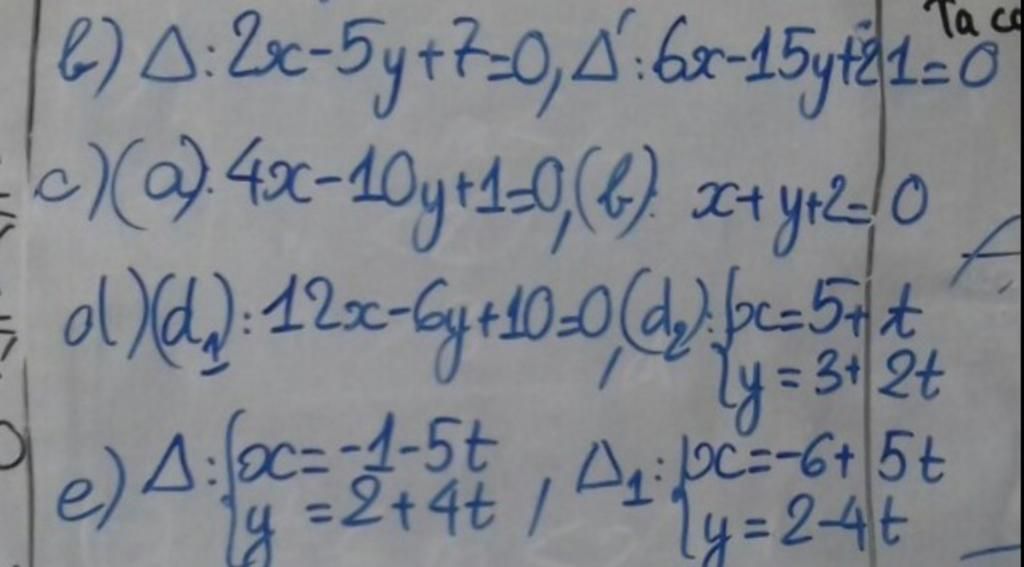 Ta có
b) Δ: 2x-5y+7=0, Δ': 6x-15y+21=0
c) (a): 4x-10y+1=0, (b): x+y+2=0
d) (d₁): 12x-6y+10=0, (d₂): {x=5+t
y=3+2t
e) Δ: {x=-1-5t, Δ₁: {x=-6+5t
y=2+4t y=2-4t